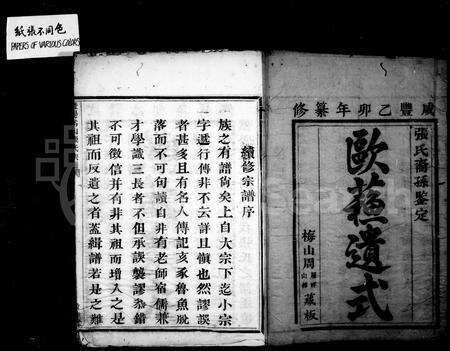 紙張不同色
PAPERS OF VARIOUS COLORS
咸豐乙卯年纂修
張氏裔孫鑒定
歐蘓遺式
梅山周
藏板
續修宗譜序
族之有譜尚矣上自大宗下迄小宗
字遞行傳非不云詳且愼也然謬誤
者甚多且有名人傳記亥豕魯魚脫
落而不可句讀自非有老師宿儒兼
才學識三長者不但承誤襲謬恭錯
不可徵信并有非其祖而增入之是
其祖而反遺之者蓋緝譜若是之難